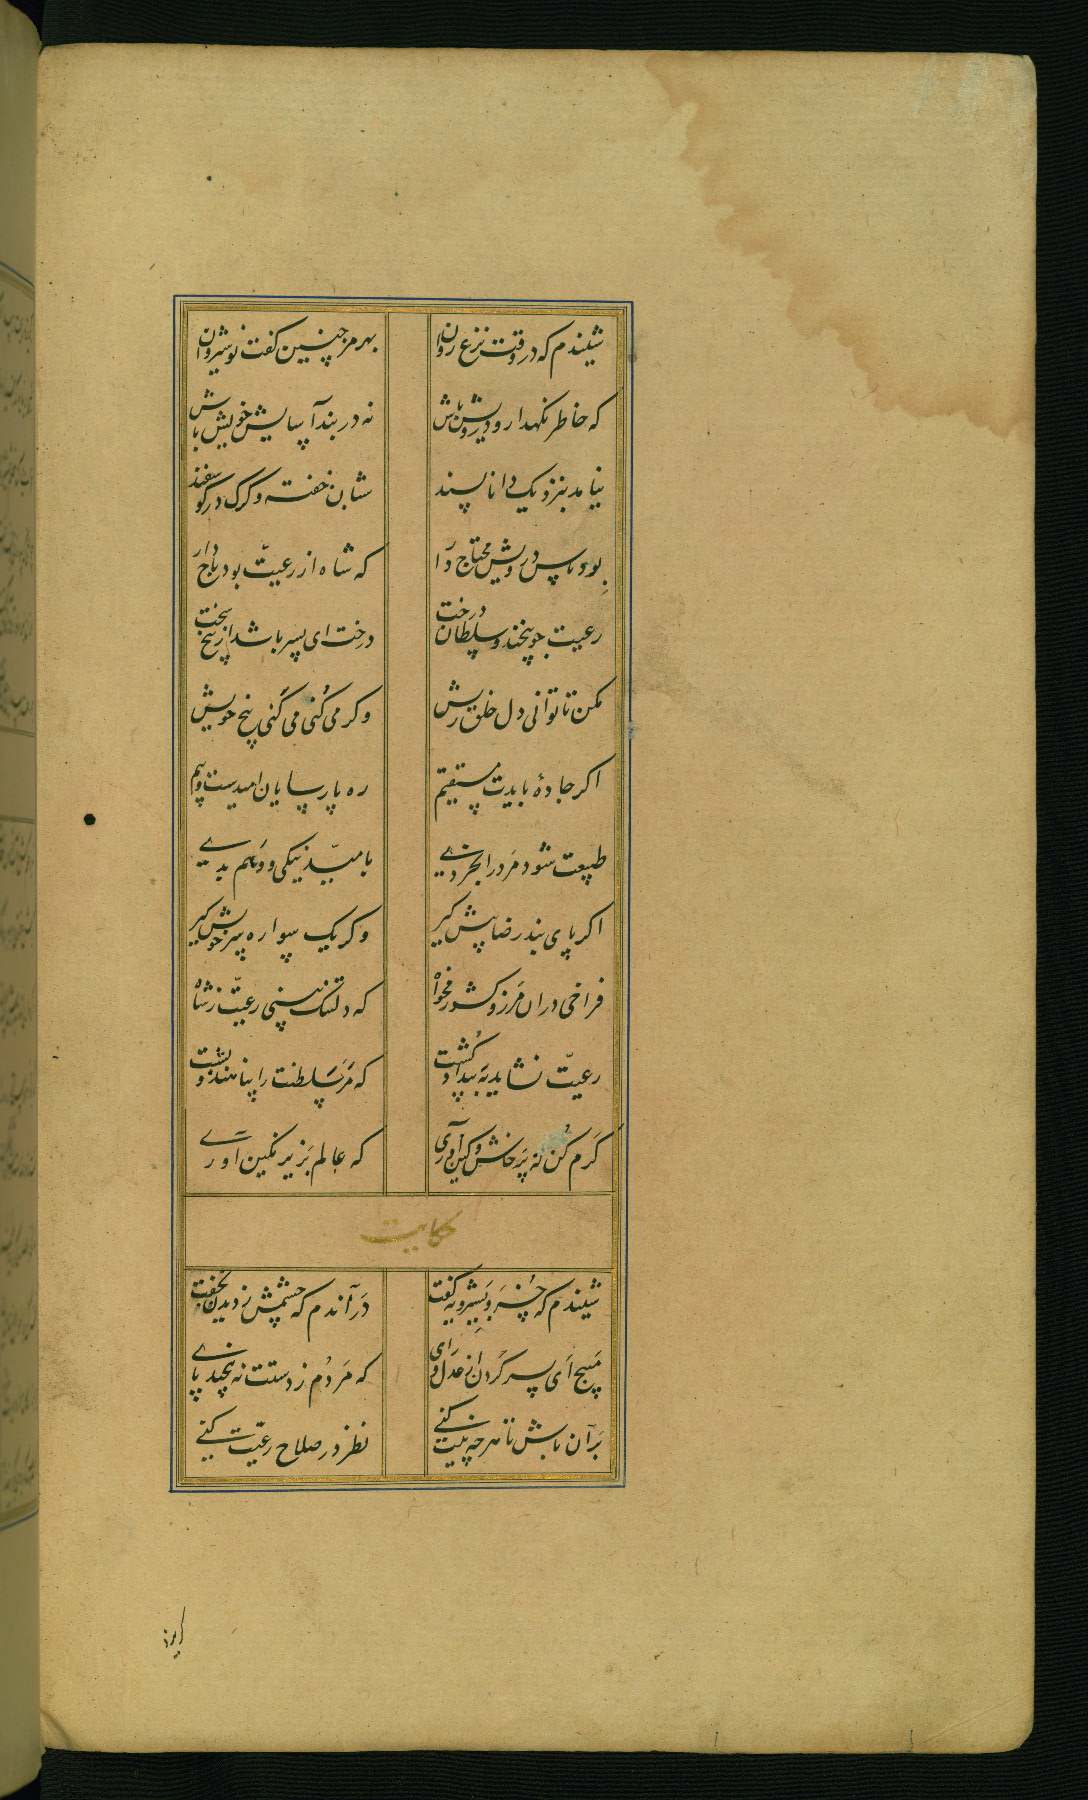 شنیدم که در وقت نزع روان بهرمز چنین کفت نوشیروان
که خاطر نکهدار درویش باش نه در بند آسایش خویش باش
نیاید بنزدیک دانا پسند شبان خفته و کرک در کوسفند
برو پاس درویش محتاج دار که شاه از رعیّت بود تاج دار
رعیت چو بیخند و سلطان درخت درخت ای پسر باشد از بیخ سخت
مکن تا توانی دل خلق ریش وکر می کُنی می کَنی بیخ خویش
اکر جادهٔ بایدت مستقیم ره پارسایان امیدست و بیم
طبیعت شود مرد را بخردی بامید نیکی و وهم بدی
اکر پای بندر رضا پیش کیر وکر یک سواره سر خویش کیر
فراخی دران مرز و کشور مخواه که دلتنک بینی رعیّت ز شاه
رعیّت نشاید به بیداد کشت که مر سلطنت را پناهند و پشت
کرم کن نه پرخاش و کین آوری که عالم بزیر نکین آوری
حکایت
شنیدم که خسرو بشیرویه کفت در آندم که چشمش ز دیدن بخفت
مپیچ ای پسر کردن از عدل و رای که مردم ز دستت نه پیچند پای
بر آن باش تا هر چه نیت کنی نظر در صلاح رعیّت کنی